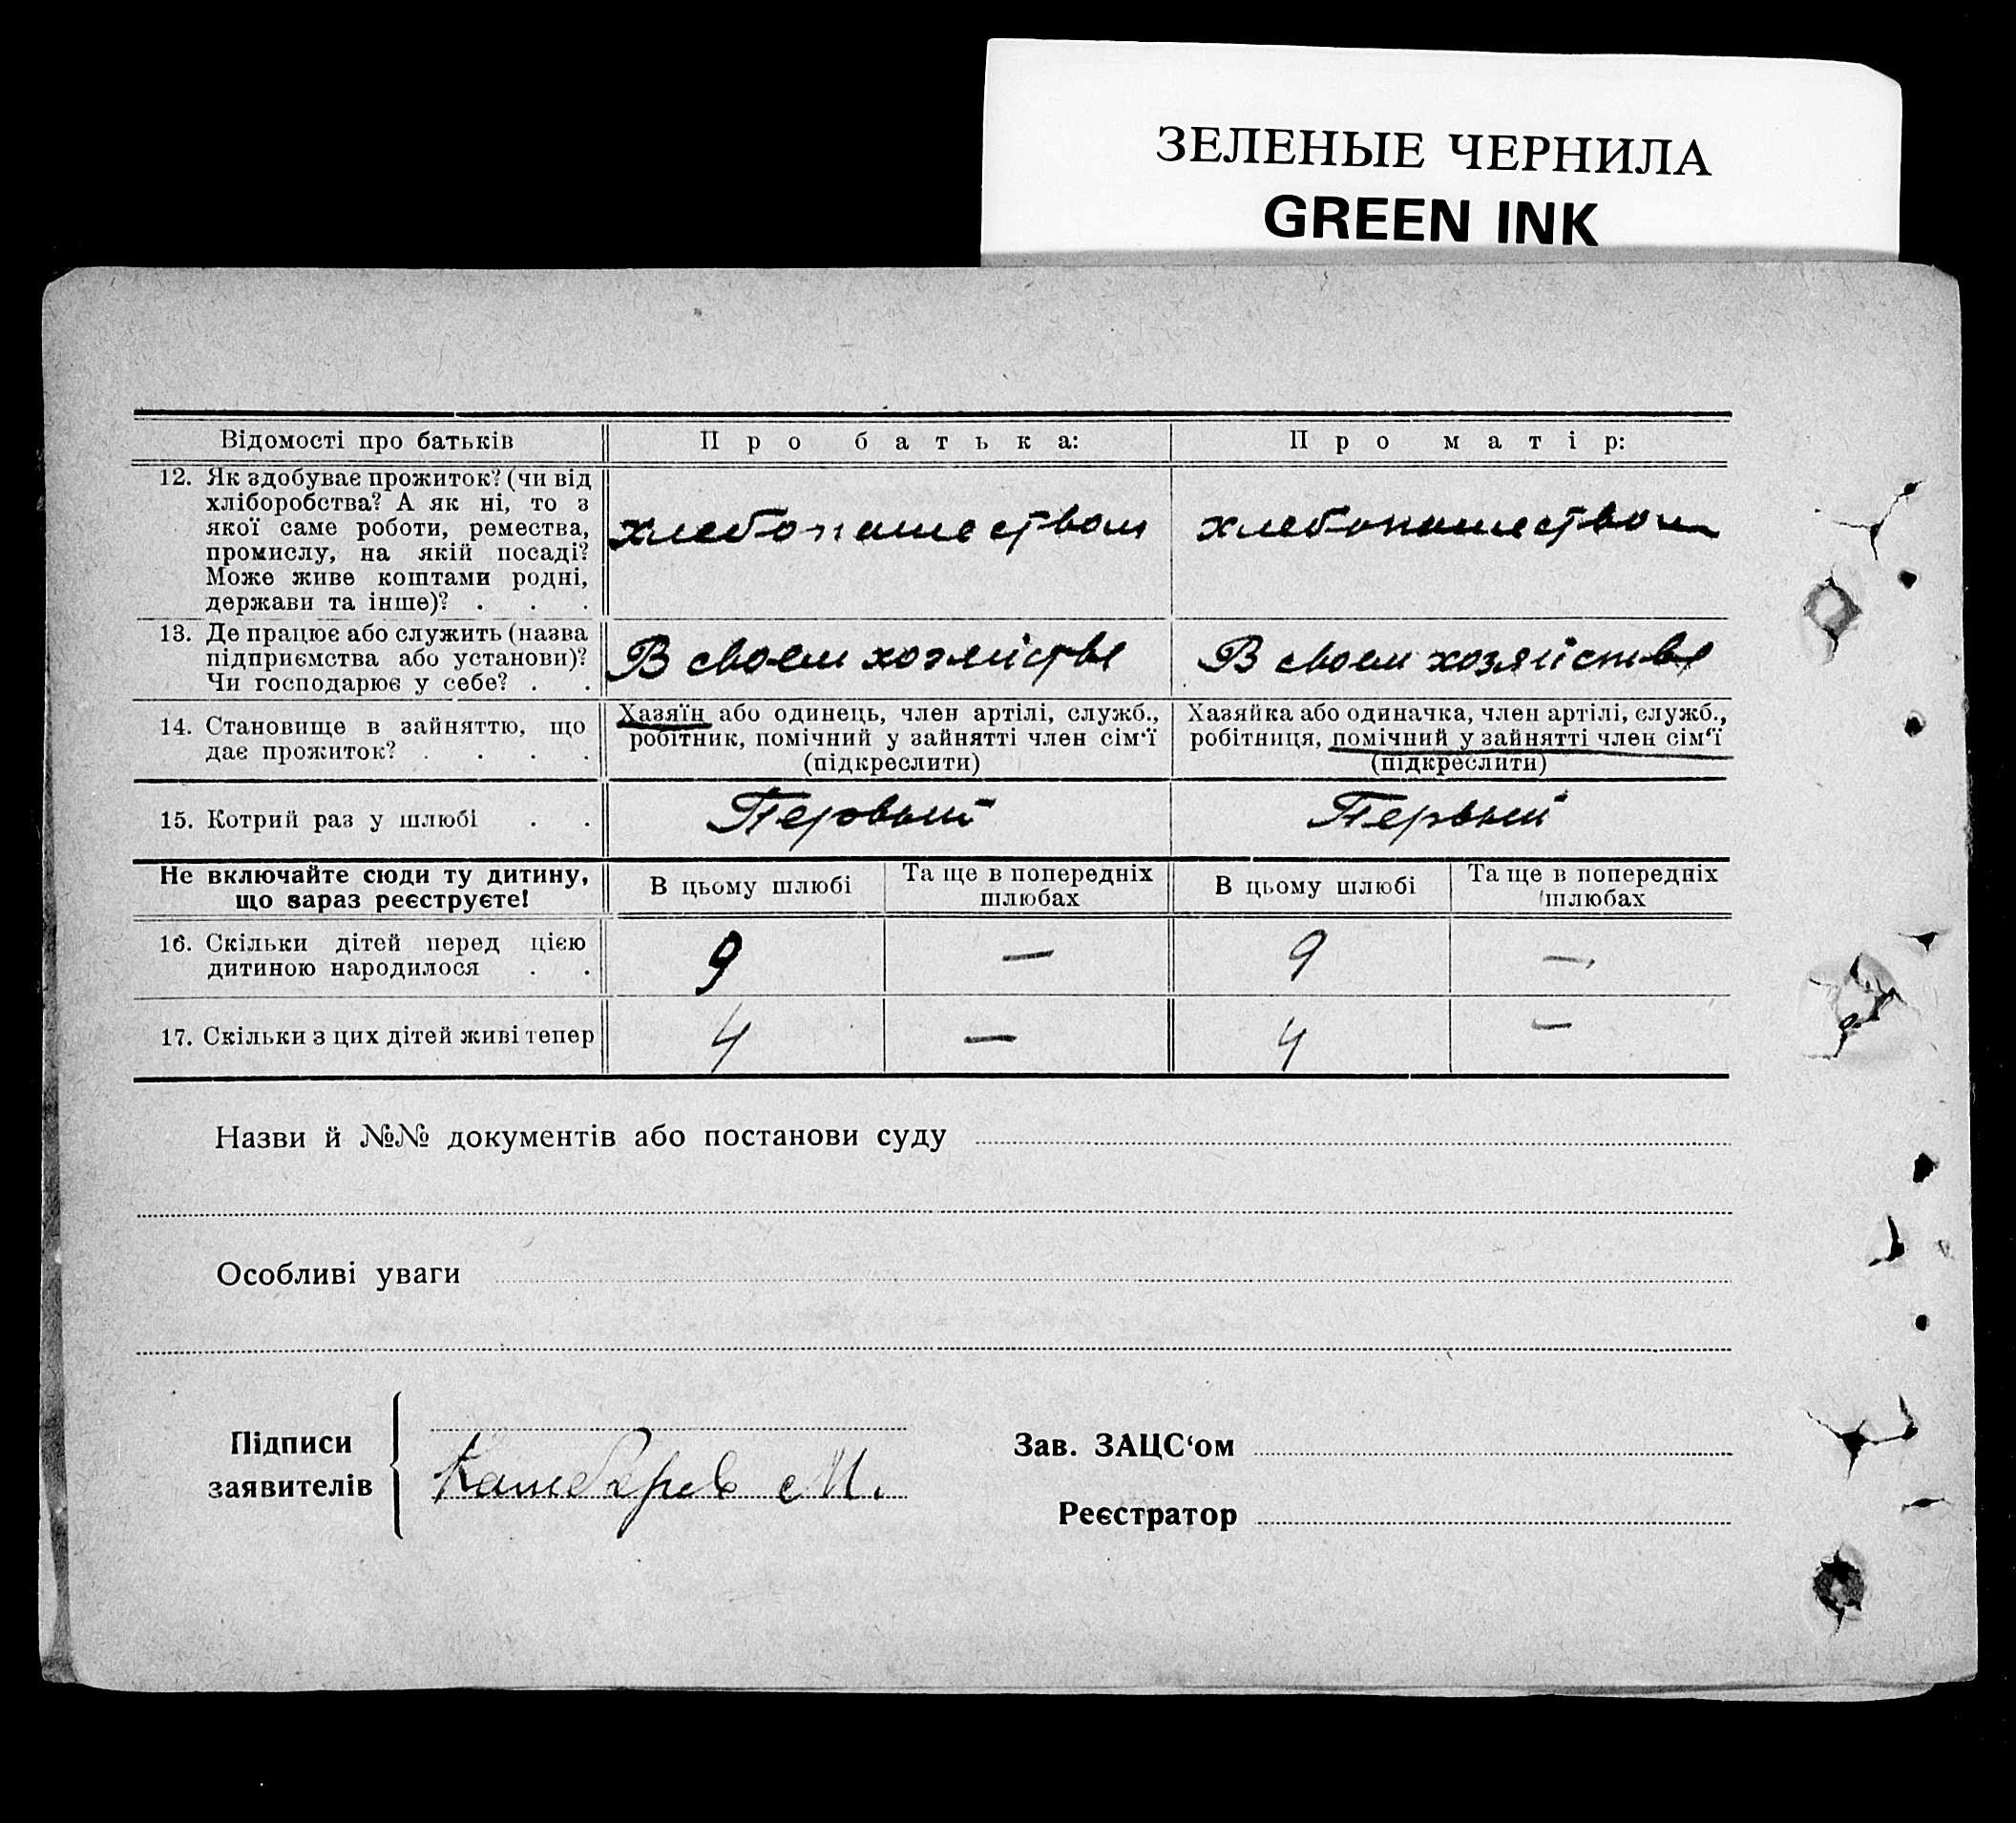 ЗЕЛЕНЫЕ ЧЕРНИЛА
GREEN INK
Відомості про батьків
Про батька:
Про матір:
12. Як здобуває прожиток? (чи від
хліборобства? А як ні, то з
якої саме роботи, ремества,
промислу, на якій посаді?
Може живе коштами родні,
держави та інше)? . . .
хлебопашеством
хлебопашеством
13. Де працює або служить (назва
підприємства або установи)?
Чи господарює у себе? . .
В своем хозяйстве
В своем хозяйстве
14. Становище в зайняттю, що
дає прожиток? . . . .
Хазяїн або одинець, член артілі, служб.,
робітник, помічний у зайнятті член сім‘ї
(підкреслити)
Хазяйка або одиначка, член артілі, служб.,
робітниця, помічний у зайнятті член сім‘ї
(підкреслити)
15. Котрий раз у шлюбі . .
Первый
Первый
Не включайте сюди ту дитину,
що зараз реєструєте!
В цьому шлюбі
Та ще в попередніх
шлюбах
В цьому шлюбі
Та ще в попередніх
шлюбах
16. Скільки дітей перед цією
дитиною народилося . .
9
—
9
—
17. Скільки з цих дітей живі тепер
4
—
4
—
Назви й №№ документів або постанови суду
Особливі уваги
Підписи
заявителів
М.
Зав. ЗАЦС‘ом
Реєстратор